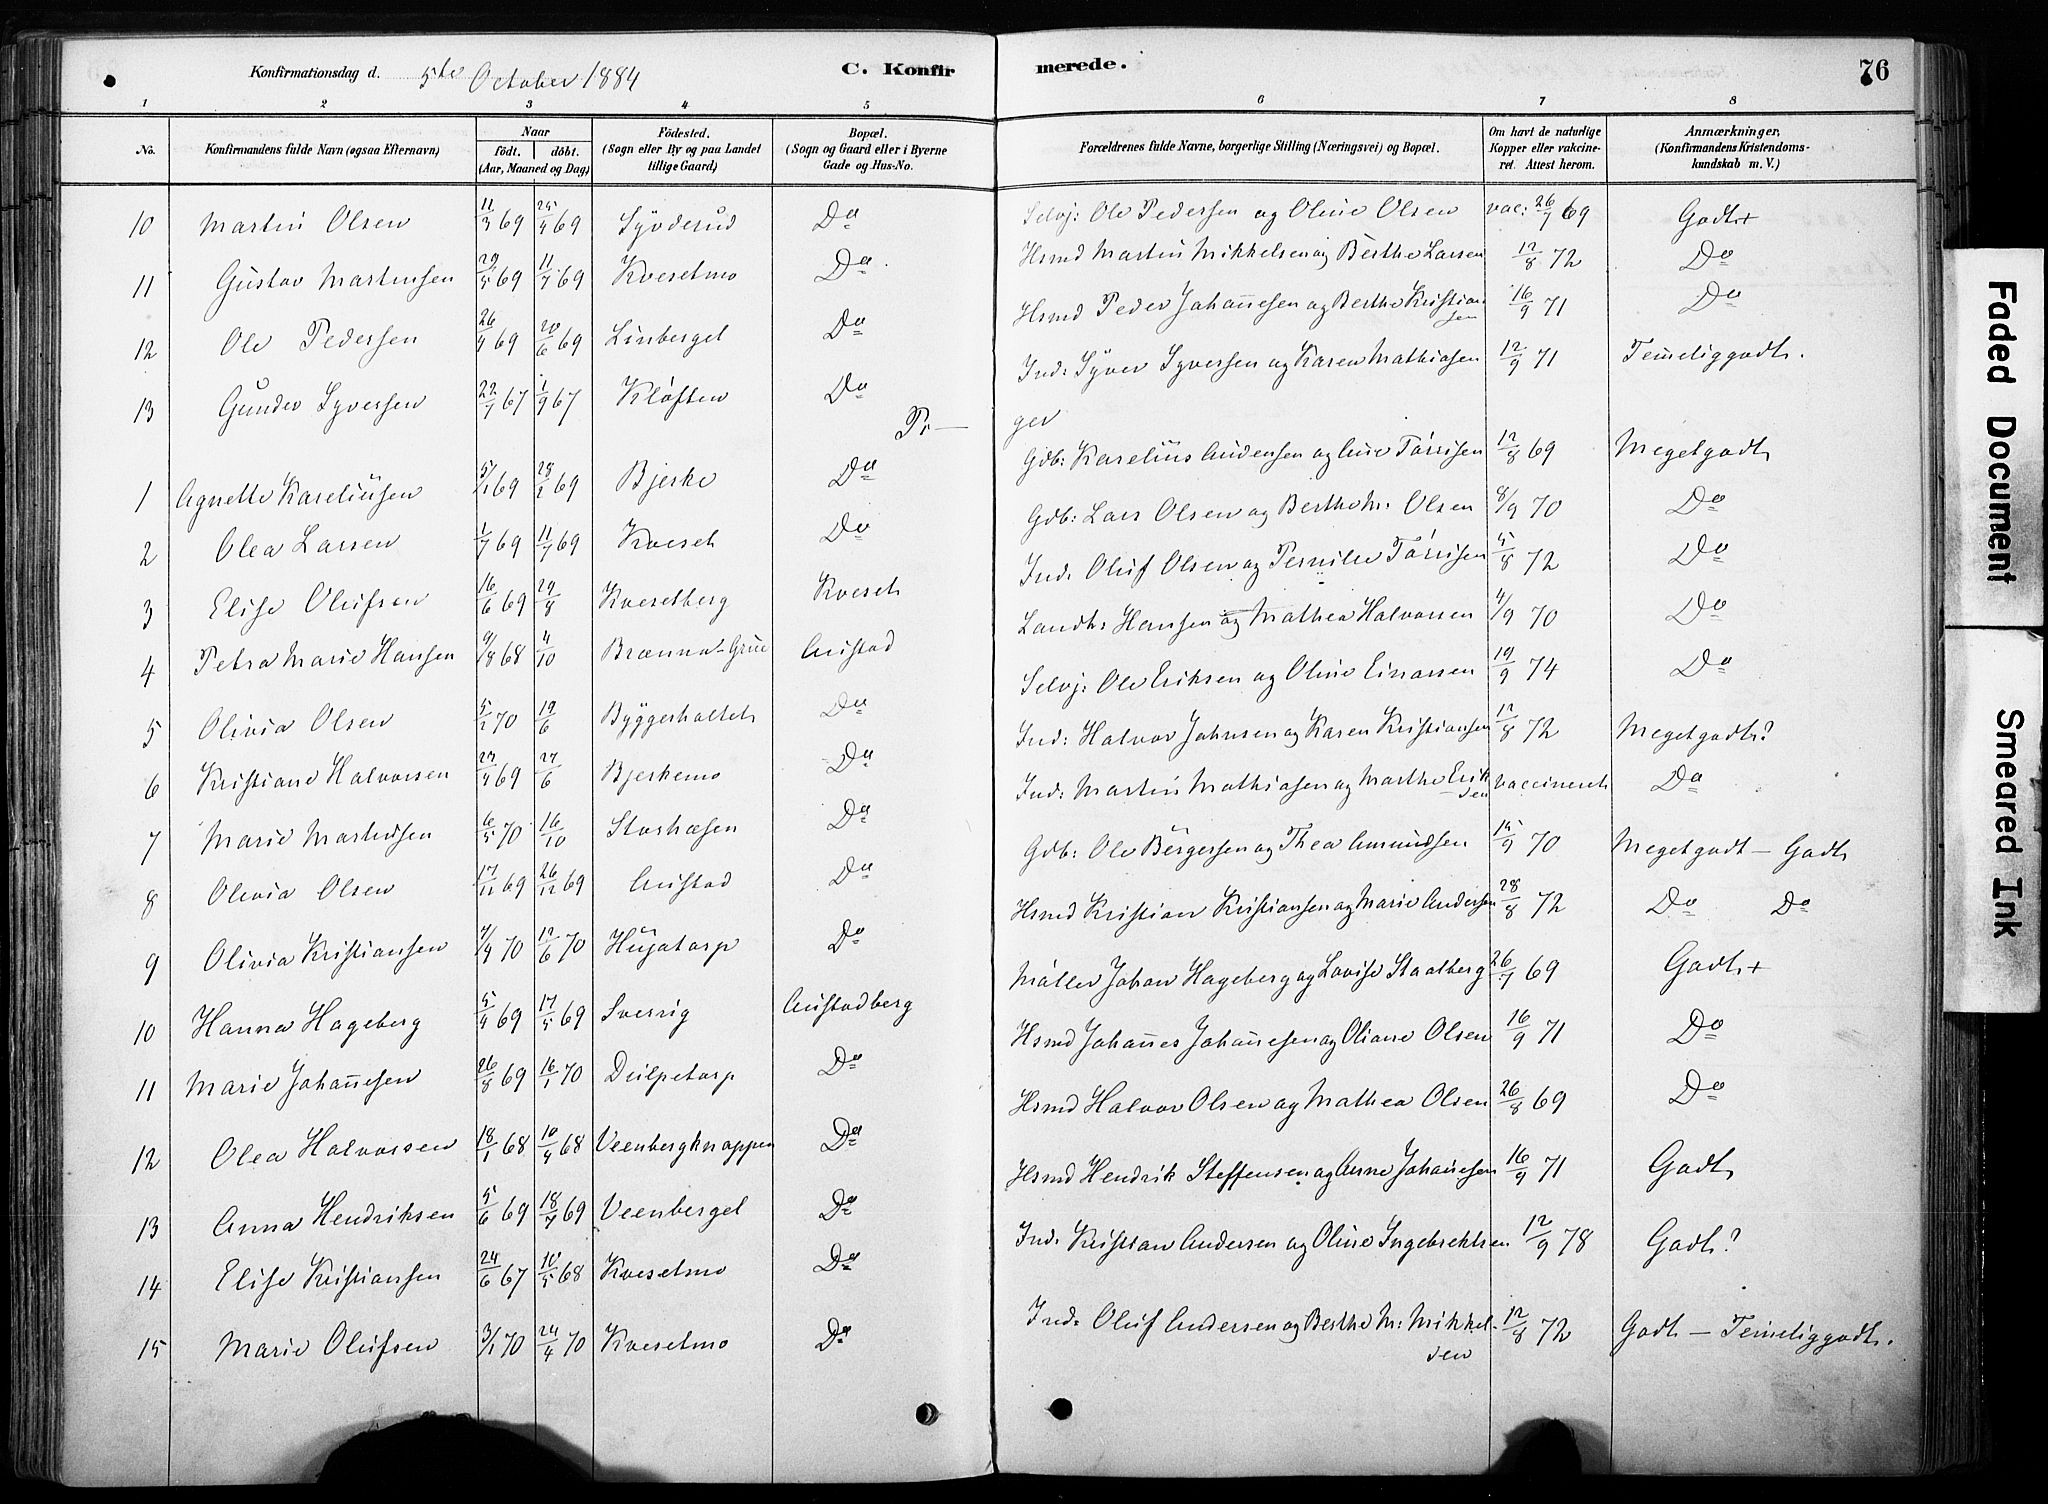 Konfirmationsdag d. 5te October 1884 C. Konfirmerede. 76
1 2 3 4 5 6 7 8
No. Konfirmandens fulde Navn (ogsaa Efternavn) Naar födt. döbt. (Aar, Maaned og Dag.) Födested. (Sogn eller By og paa Landet tillige Gaard) Bopæl. (Sogn og Gaard eller i Byerne Gade og Hus-No. Forældrenes fulde Navne, borgerlige Stilling (Næringsvei) og Bopæl. Om havt de naturlige Kopper eller vakcineret. Attest herom. Anmærkninger, (Konfirmandens Kristendomskundskab m. V.)
10 Martin Olsen 11/3 69 25/4 69 Syvderud Do Selvj: Ole Pedersen og Oline Olsen vac: 26/7 69 Godt+
11 Gustav Martinsen 29/5 69 11/7 69 Kvesetmo Do Hsmd Martin Mikkelsen og Berthe Larsen 12/8 72 Do
12 Ole Pedersen 26/4 69 20/6 69 Linberget Do Hsmd Peder Johannesen og Berthe Kristiansen 16/9 71 Do
13 Gunder Syversen 22/7 67 1/9 67 Kløften Do Ind: Syver Syversen og Karen Mathiasen 12/9 71 Temeliggodt.
Pi— ger
1 Agnette Kareliusen 5/1 69 28/2 69 Bjerke Do Gdb: Karelius Audensen og Ane Tørrisen 12/8 69 Megetgodt
2 Olea Larsen 1/7 69 11/7 69 Kveset Do Gdb: Lars Olsen og Berthe M. Olsen 8/9 70 Do
3 Elise Olufsen 16/6 69 29/8 Kvesetberg Kveset Ind. Oluf Olsen og Pernille Tørrisen 5/8 72 Do
4 Petra Marie Hansen 9/8 68 4/10 Brænna-Grue Austad Landh: Hansen og Mathea Halvorsen 4/9 70 Do
5 Olivia Olsen 5/2 70 19/6 Byggerholtet Do Selvj: Ole Eriksen og Oline Einarsen 19/9 74 Do
6 Kristiane Halvorsen 23/4 69 27/6 Bjerkemo Do Ind: Halvor Johnsen og Karen Kristiansen 12/8 72 Megetgodt?
7 Marie Martinsen 6/5 70 16/10 Storhæsen Do Ind: Martin Mathiasen og Marthe Eriksen vaccineret Do
8 Olivia Olsen 17/11 69 26/12 69 Austad Do Gdb: Ole Børgersen og Thea Amundsen 15/9 70 Megetgodt – Godt
9 Olivia Kristiansen 4/4 70 12/6 70 Hugatorp Do Hsmd Kristian Kristiansen og Marie Andersen 28/8 72 Do Do
10 Hanna Hageberg 5/4 69 17/5 69 Sverrig Austadberg Møller Johan Hageberg og Lovise Staalberg 26/7 69 Godt+
11 Marie Johannesen 26/8 69 16/1 70 Dulpetorp Do Hsmd Johannes Johannesen og Oliane Olsen 16/9 71 Do
12 Olea Halvorsen 18/1 68 10/4 68 Veenbergknappen Do Hsmd Halvor Olsen og Mathea Olsen 26/8 69 Do
13 Anna Hendriksen 5/6 69 18/7 69 Veenberget Do Hsmd Hendrik Steffensen og Anne Johannesen 16/9 71 Godt
14 Elise Kristiansen 24/6 67 10/5 68 Kvesetmo Do Ind. Kristian Andersen og Oline Ingebrektsen 12/9 78 Godt?
15 Marie Olufsen 3/1 70 24/4 70 Kvesetmo Do Ind: Oluf Andersen og Berthe M. Mikkelsen 12/8 72 Godt – Temeliggodt.
Faded Document
Smeared Ink